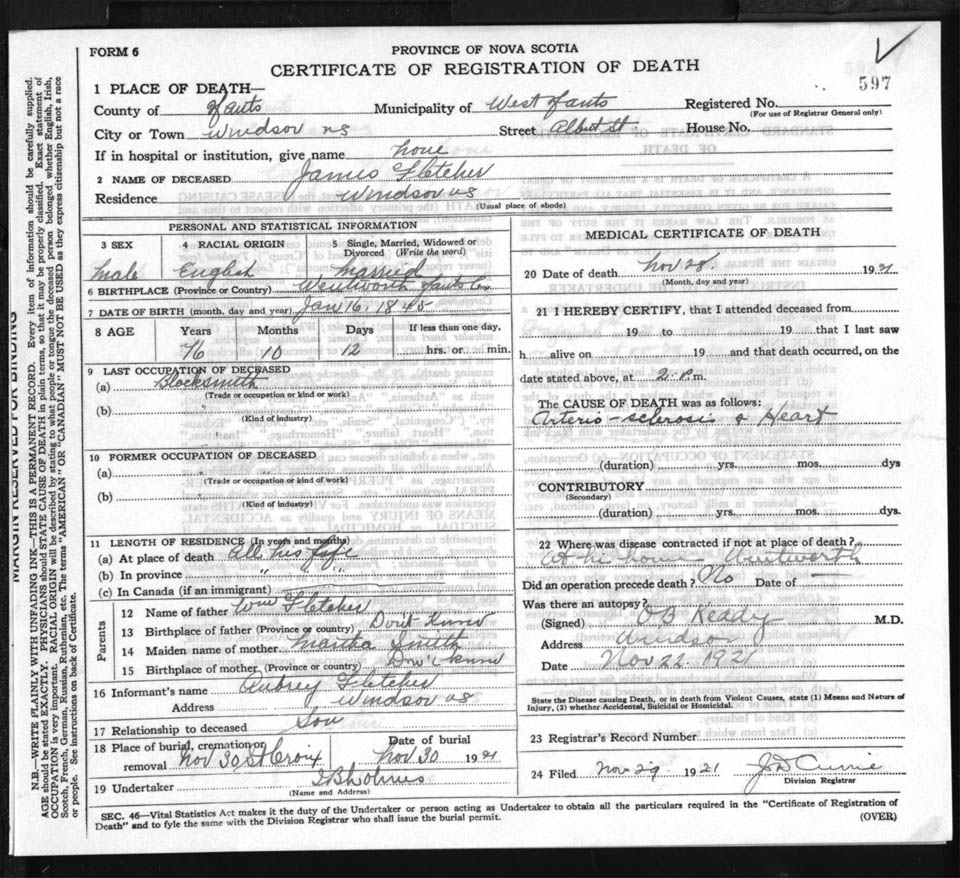 FORM 6
PROVINCE OF NOVA SCOTIA
CERTIFICATE OF REGISTRATION OF DEATH
597
1 PLACE OF DEATH—
County of Hants Municipality of West Hants Registered No.
(For use of Registrar General only)
City or Town Windsor NS Street Albert St. House No.
If in hospital or institution, give name none
2 NAME OF DECEASED James Fletcher
Residence Windsor NS
(Usual place of abode)
PERSONAL AND STATISTICAL INFORMATION
3 SEX 4 RACIAL ORIGIN 5 Single, Married, Widowed or Divorced (Write the word)
Male English Married
6 BIRTHPLACE (Province or Country) Wentworth Hants Co.
7 DATE OF BIRTH (month, day and year) Jan 16, 1845
8 AGE Years Months Days If less than one day,
76 10 12 hrs. or min.
9 LAST OCCUPATION OF DECEASED
(a) Blacksmith
(Trade or occupation or kind or work)
(b)
(Kind of industry)
10 FORMER OCCUPATION OF DECEASED
(a) "
(Trade or occupation or kind of work)
(b) "
(Kind of industry)
11 LENGTH OF RESIDENCE (In years and months)
(a) At place of death All his life
(b) In province " "
(c) In Canada (if an immigrant)
Parents
12 Name of father Wm Fletcher
13 Birthplace of father (Province or country) Don't know
14 Maiden name of mother Smith
15 Birthplace of mother (Province or country) Don't know
16 Informant's name Aubrey Fletcher
Address Windsor NS
17 Relationship to deceased Son
18 Place of burial, cremation or removal Nov 30 St Croix Date of burial Nov 30 1921
19 Undertaker
(Name and Address)
MEDICAL CERTIFICATE OF DEATH
20 Date of death Nov 28. 1921
(Month, day and year)
21 I HEREBY CERTIFY, that I attended deceased from
19 to 19 that I last saw
h alive on 19 and that death occurred, on the
date stated above, at 2 P.m.
The CAUSE OF DEATH was as follows:
Arterio-sclerosis & Heart
(duration) yrs. mos. dys
CONTRIBUTORY
(Secondary)
(duration) yrs. mos. dys.
22 Where was disease contracted if not at place of death?
At his home Wentworth
Did an operation precede death? No Date of —
Was there an autopsy?
(Signed) O B Keddy M.D.
Address Windsor
Date Nov 22 1921
State the Disease causing Death, or in death from Violent Causes, state (1) Means and Nature of
Injury, (2) whether Accidental, Suicidal or Homicidal.
23 Registrar's Record Number
24 Filed Nov 29 1921 J D Currie
Division Registrar
SEC. 46—Vital Statistics Act makes it the duty of the Undertaker or person acting as Undertaker to obtain all the particulars required in the "Certificate of Registration of
Death" and to fyle the same with the Division Registrar who shall issue the burial permit.
(OVER)
MARGIN RESERVED FOR BINDING
N.B.—WRITE PLAINLY WITH UNFADING INK—THIS IS A PERMANENT RECORD. Every item of information should be carefully supplied.
AGE should be stated EXACTLY. PHYSICIANS should STATE CAUSE OF DEATH in plain terms, so that it may be properly classified. Exact statement of
OCCUPATION is very important. RACIAL ORIGIN will be described by stating to what people or tongue the deceased person belonged, whether English, Irish,
Scotch, French, German, Russian, Ruthenian, etc. The terms "AMERICAN" OR "CANADIAN" MUST NOT BE USED as they express citizenship but not a race
or people. See instructions on back of Certificate.